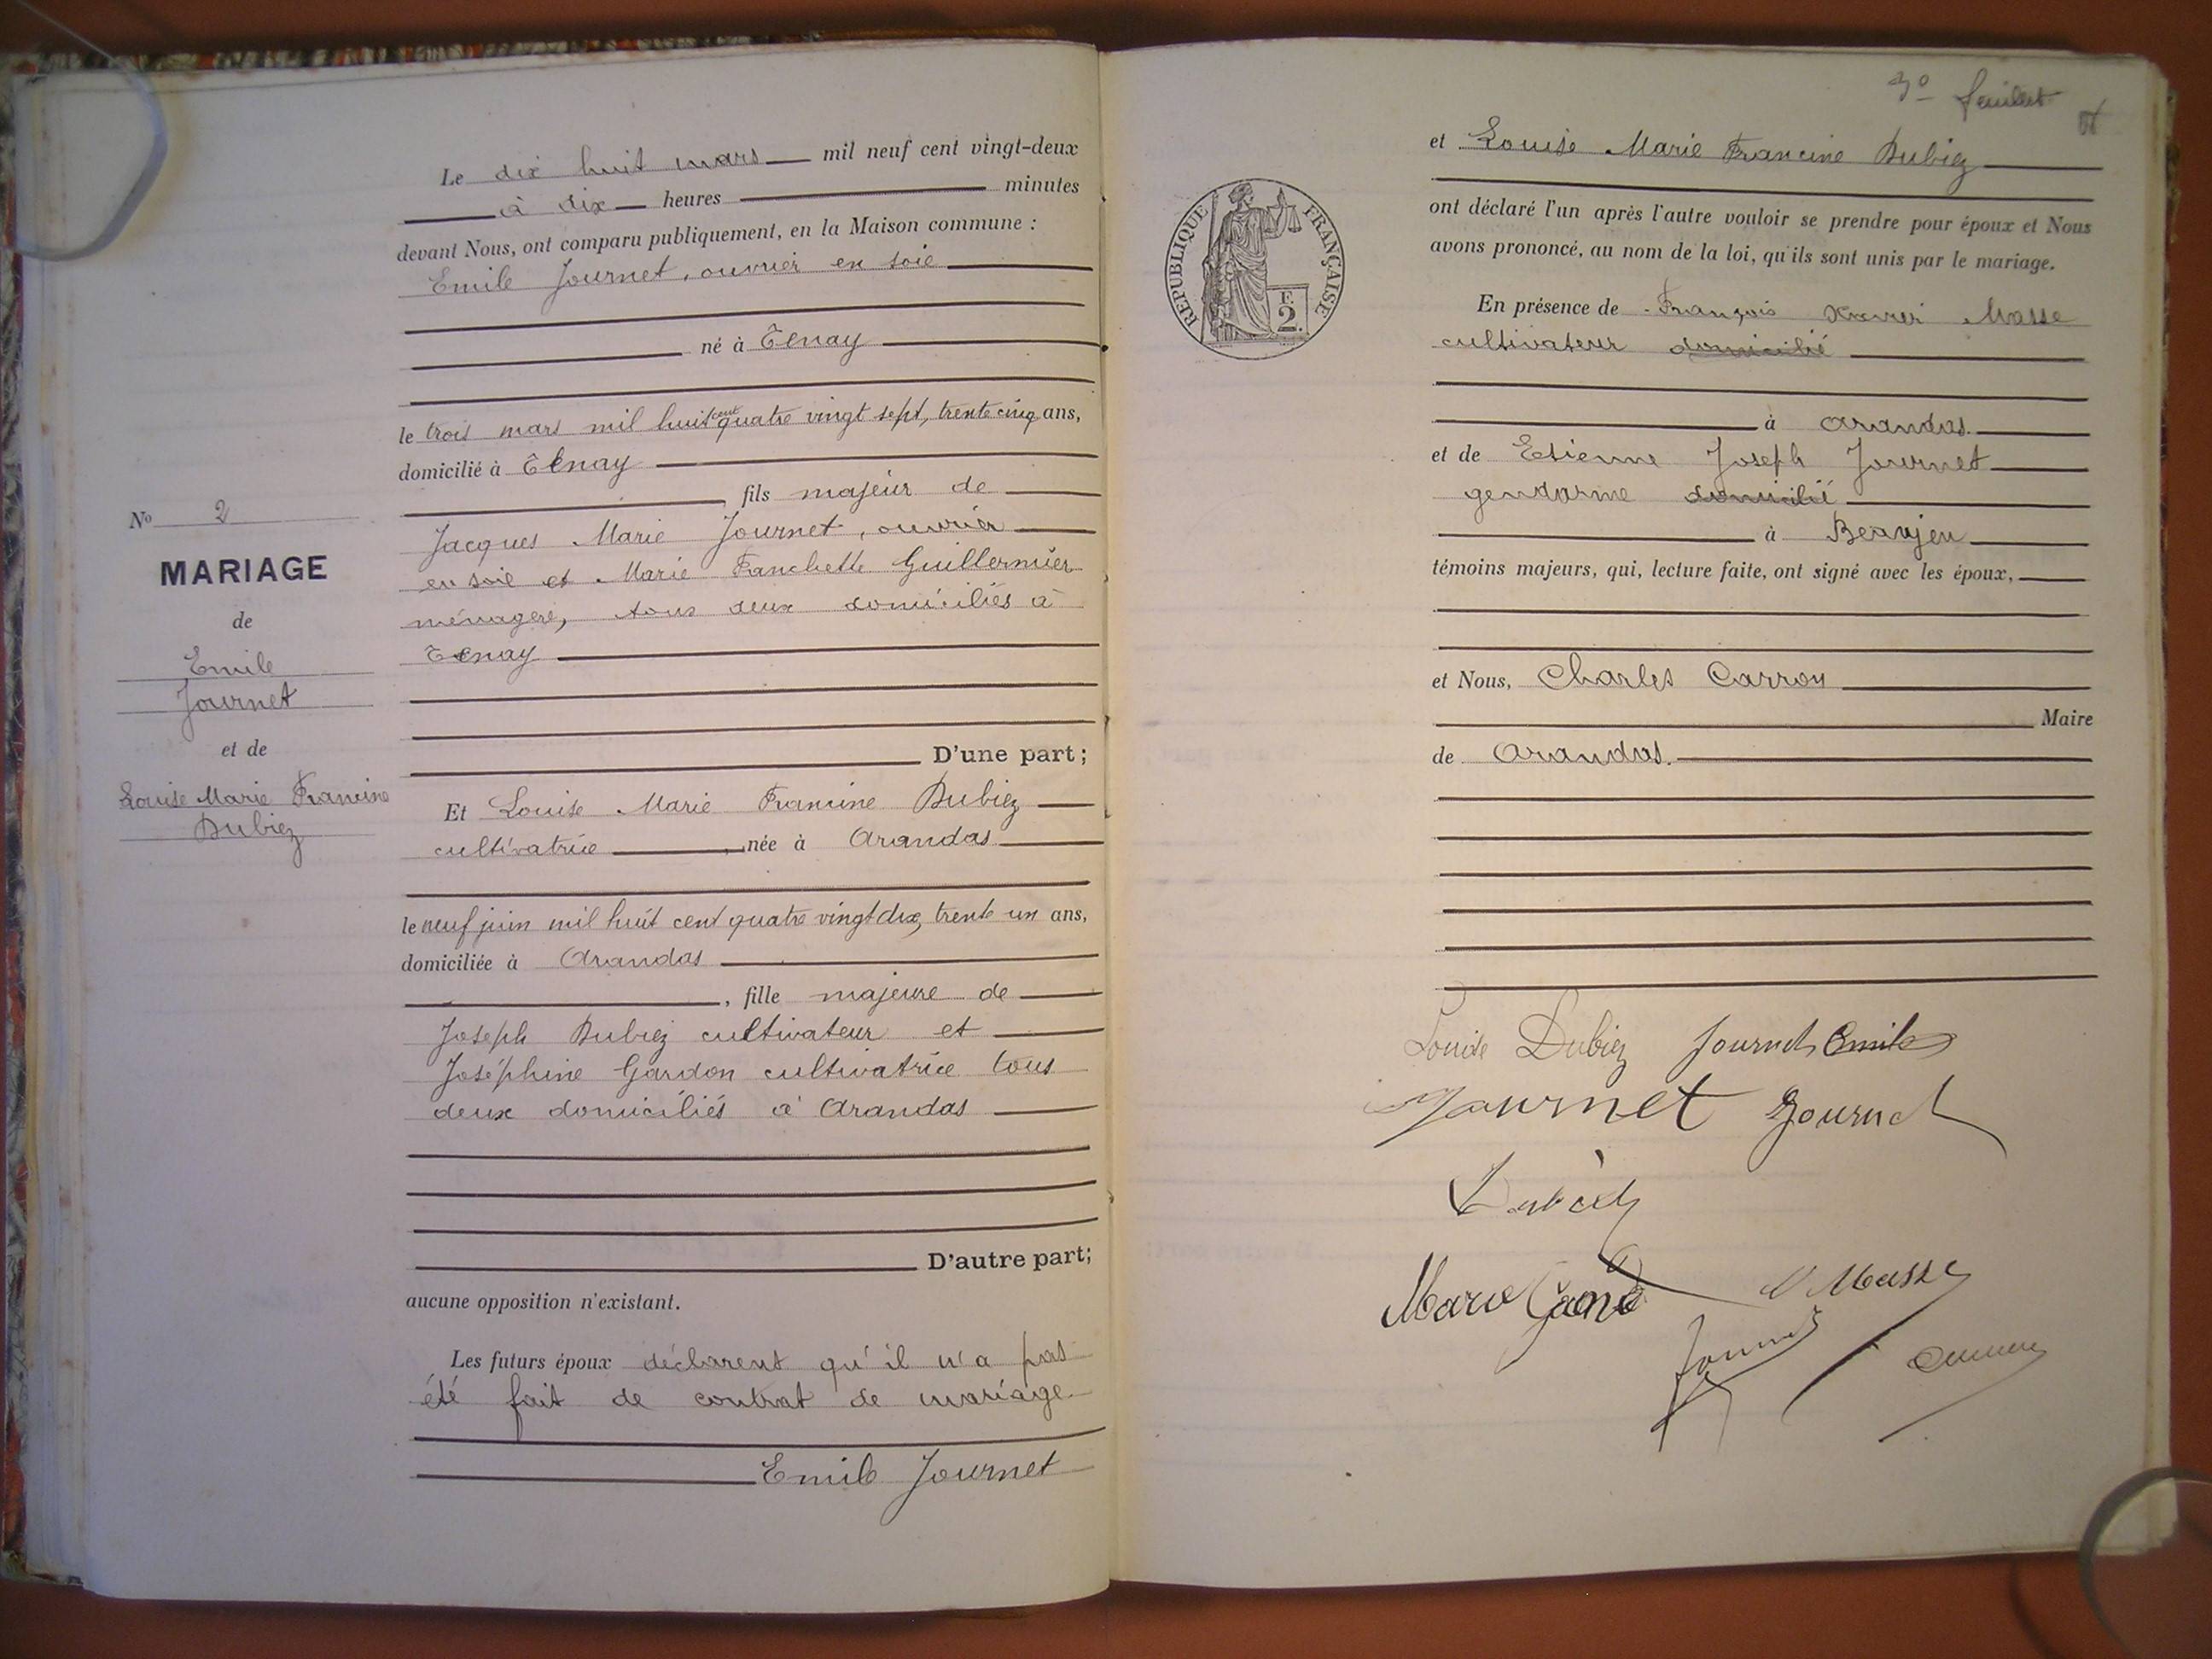 Le dix huit mars mil neuf cent vingt-deux
à dix heures minutes
devant Nous, ont comparu publiquement, en la Maison commune :
Emile Journet, ouvrier en soie
né à Tenay
le trois mars mil huit cent quatre vingt sept, trente cinq ans,
domicilié à Tenay
fils majeur de
Jacques Marie Journet, ouvrier
en soie et Marie Fanchette Guillermier
ménagère, tous deux domiciliés à
Tenay
D'une part;
No 2
MARIAGE
de
Emile
Journet
et de
Louise Marie Francine
Dubiez
Et Louise Marie Francine Dubiez
cultivatrice, née à Arandas
le neuf juin mil huit cent quatre vingt dix, trente un ans,
domiciliée à Arandas
, fille majeure de
Joseph Dubiez cultivateur et
Joséphine Gardon cultivatrice tous
deux domiciliés à Arandas
D'autre part;
aucune opposition n'existant.
Les futurs époux déclarent qu'il n'a pas
été fait de contrat de mariage
Emile Journet
3e feuillet
et Louise Marie Francine Dubiez
RÉPUBLIQUE FRANÇAISE
F.
2.
ont déclaré l'un après l'autre vouloir se prendre pour époux et Nous
avons prononcé, au nom de la loi, qu'ils sont unis par le mariage.
En présence de François Xavier Masse
cultivateur domicilié
à Arandas
et de Etienne Joseph Journet
gendarme domicilié
à Beaujeu
témoins majeurs, qui, lecture faite, ont signé avec les époux,
et Nous, Charles Carron
Maire
de Arandas.
Louise Dubiez Journet Emile
Journet Journet
Dubiez
Marie Masse
Journet